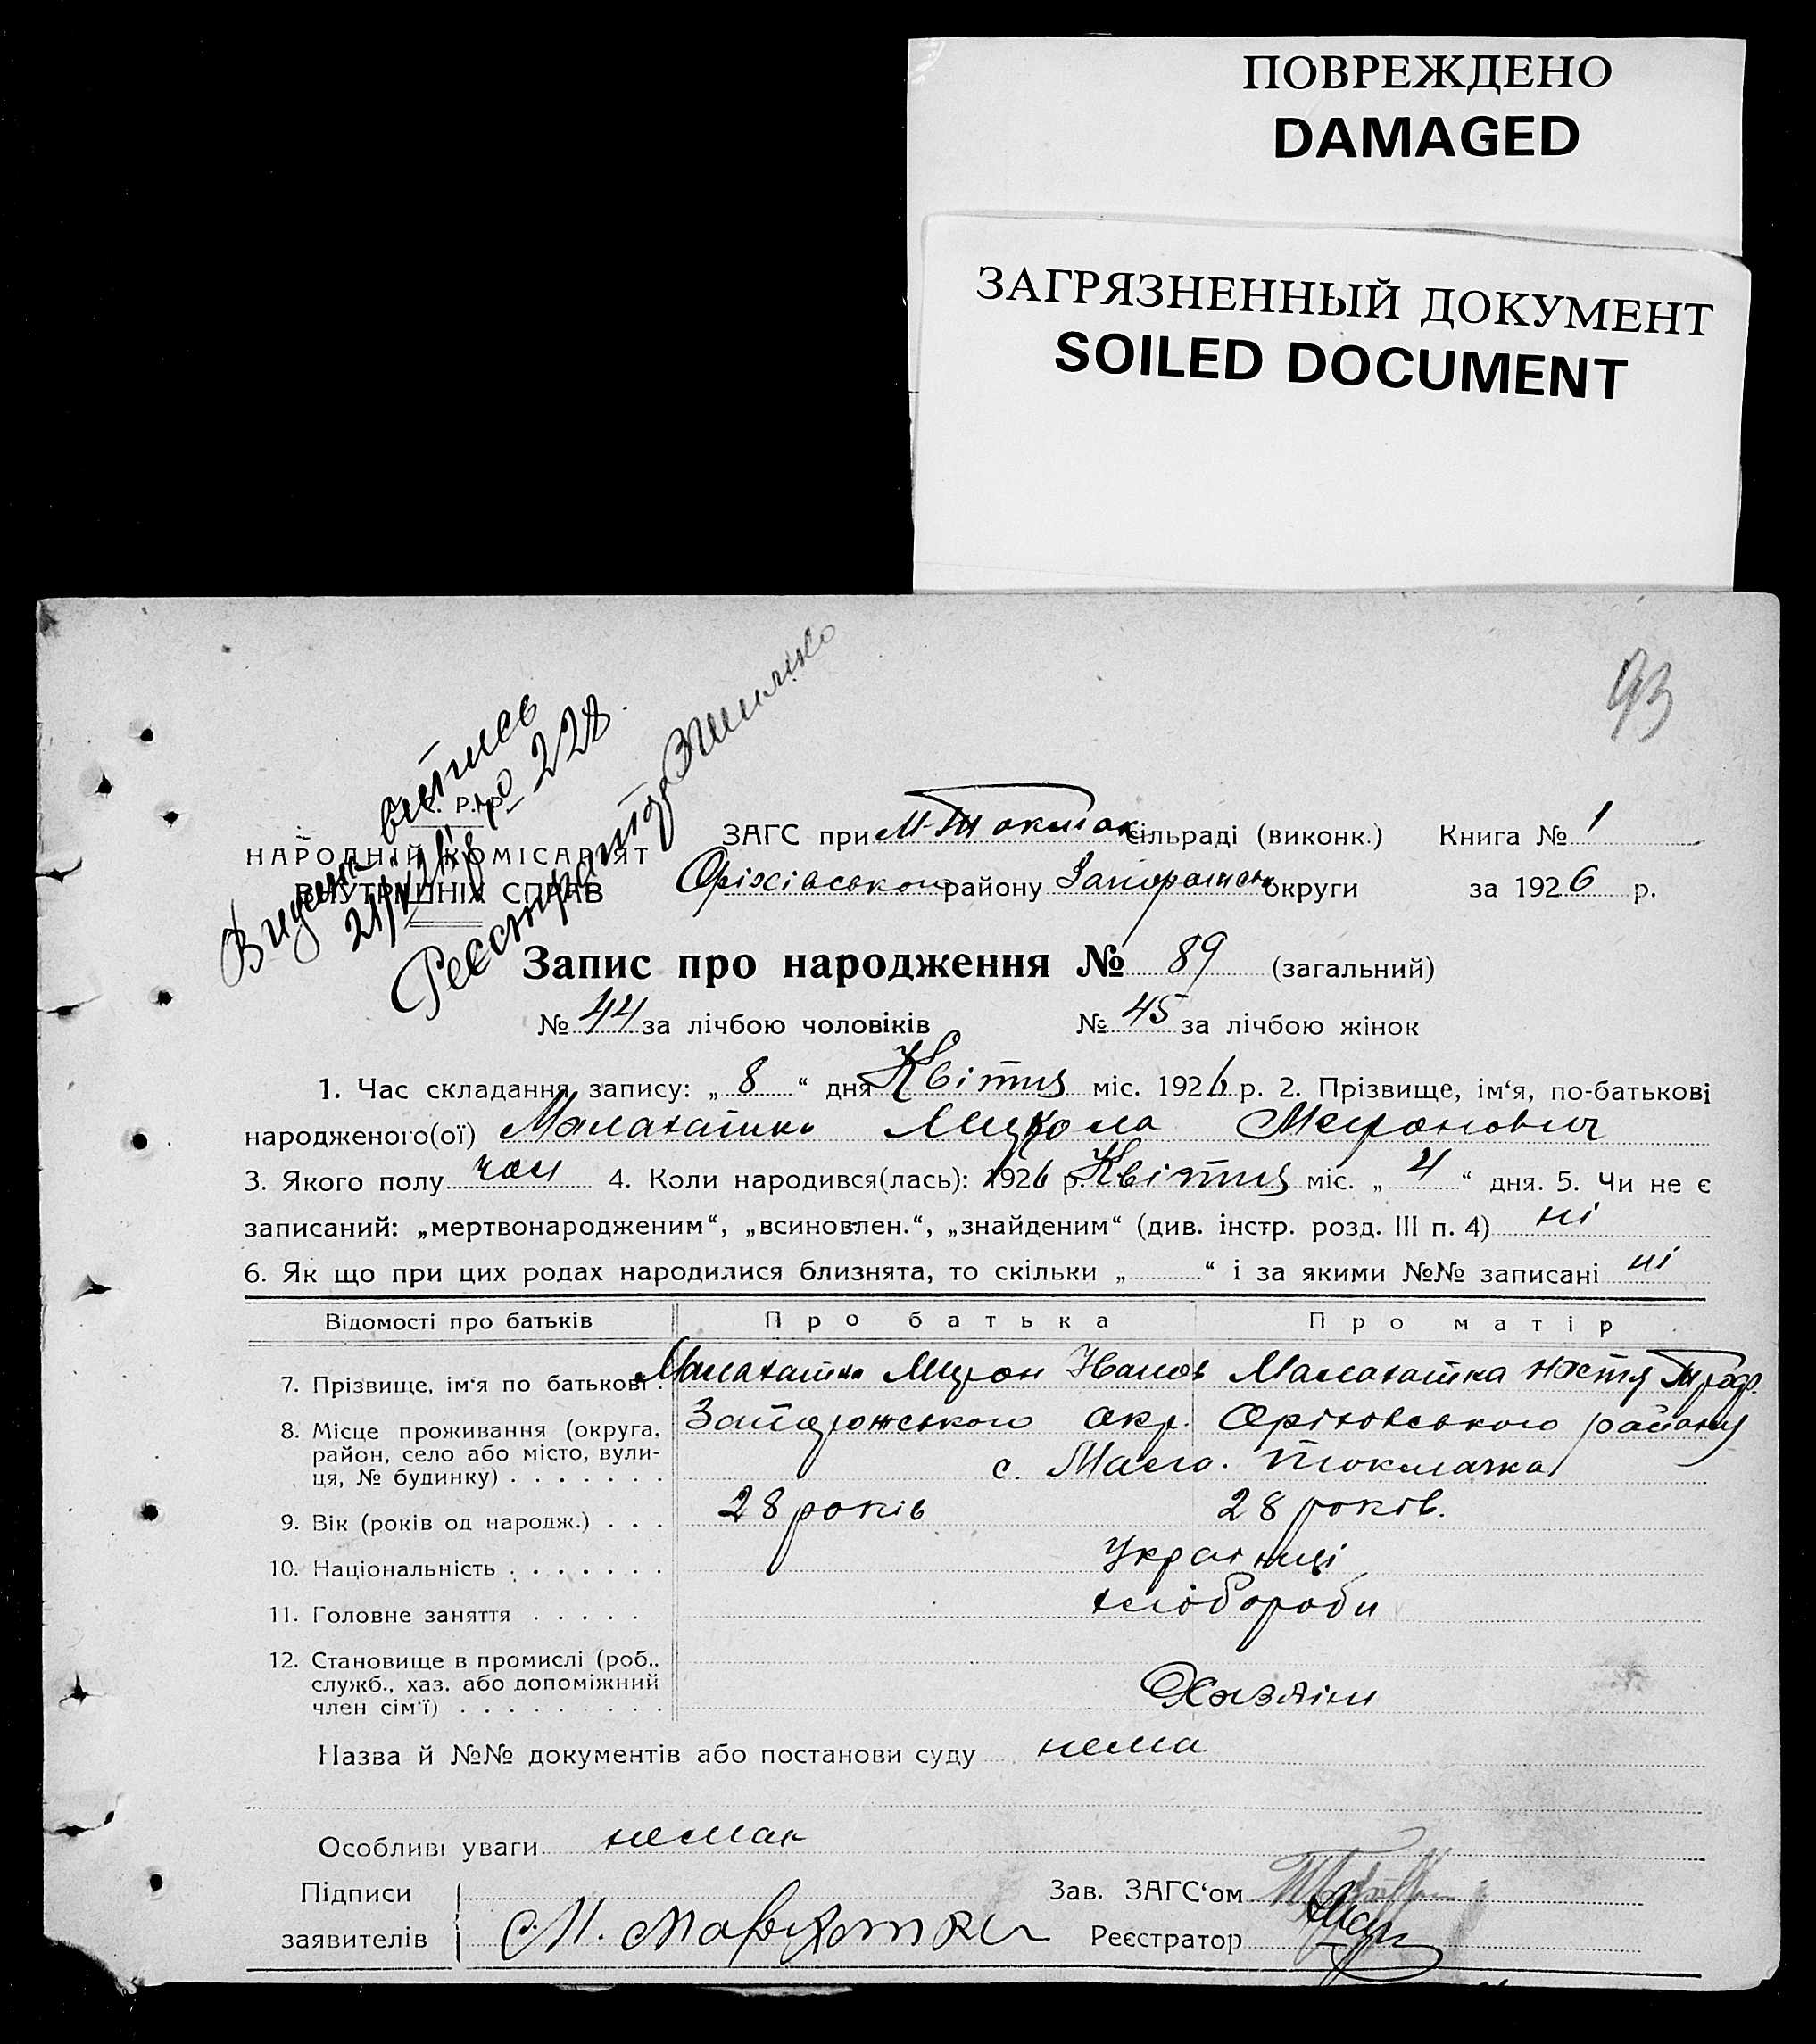 ПОВРЕЖДЕНО
DAMAGED
ЗАГРЯЗНЕННЫЙ ДОКУМЕНТ
SOILED DOCUMENT
93
Видано витпись
21/V 28р по 228.
Реєстратор
Р.
НАРОДНІЙ КОМІСАРІЯТ
ВНУТРІШНІХ СПРАВ
ЗАГС при М-Токмак сільраді (виконк.) Книга № 1
Оріхівського району Запоражськ округи за 1926 р.
Запис про народження № 89 (загальний)
№ 44 за лічбою чоловіків № 45 за лічбою жінок
1. Час складання запису: „ 8 “ дня Квітня міс. 1926 р. 2. Прізвище, ім‘я, по-батькові
народженого(ої) Малахатка Микола Меронович
3. Якого полу чол 4. Коли народився(лась): 1926 р. Квітня міс. „ 4 “ дня. 5. Чи не є
записаний: „мертвонародженим“, „всиновлен.“, „знайденим“ (див. інстр. розд. III п. 4) ні
6. Як що при цих родах народилися близнята, то скільки „ “ і за якими №№ записані ні
Відомості про батьків Про батька Про матір
7. Прізвище, ім‘я по батькові. Малахатка Мирон Іванов Малахатка Настя Троф.
8. Місце проживання (округа, Запорожського окр. Оріховського району
район, село або місто, вули-
ця, № будинку) . . . . . . . с. Мало. Токмачка
9. Вік (років од народж.) . . . 28 років 28 років.
10. Національність . . . . . . . Українці
11. Головне заняття . . . . . хлібороби
12. Становище в промислі (роб..
служб., хаз. або допоміжний
член сім‘ї) . . . . . . . . . Хазяіни
Назва й №№ документів або постанови суду нема
Особливі уваги немає
Підписи Зав. ЗАГС‘ом
заявителів М. Реєстратор